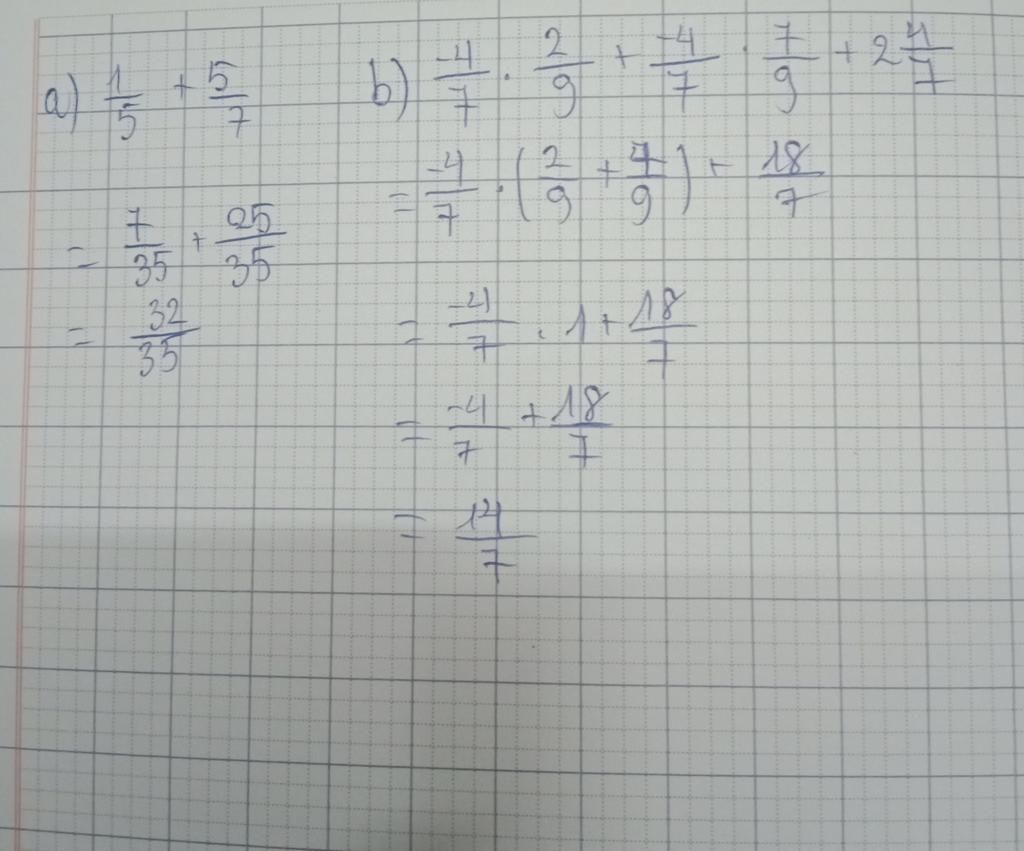 a) 1/5 + 5/7
= 7/35 + 25/35
= 32/35
b) -4/7 . 2/9 + -4/7 . 7/9 + 2 4/7
= -4/7 . (2/9 + 7/9) + 18/7
= -4/7 . 1 + 18/7
= -4/7 + 18/7
= 14/7